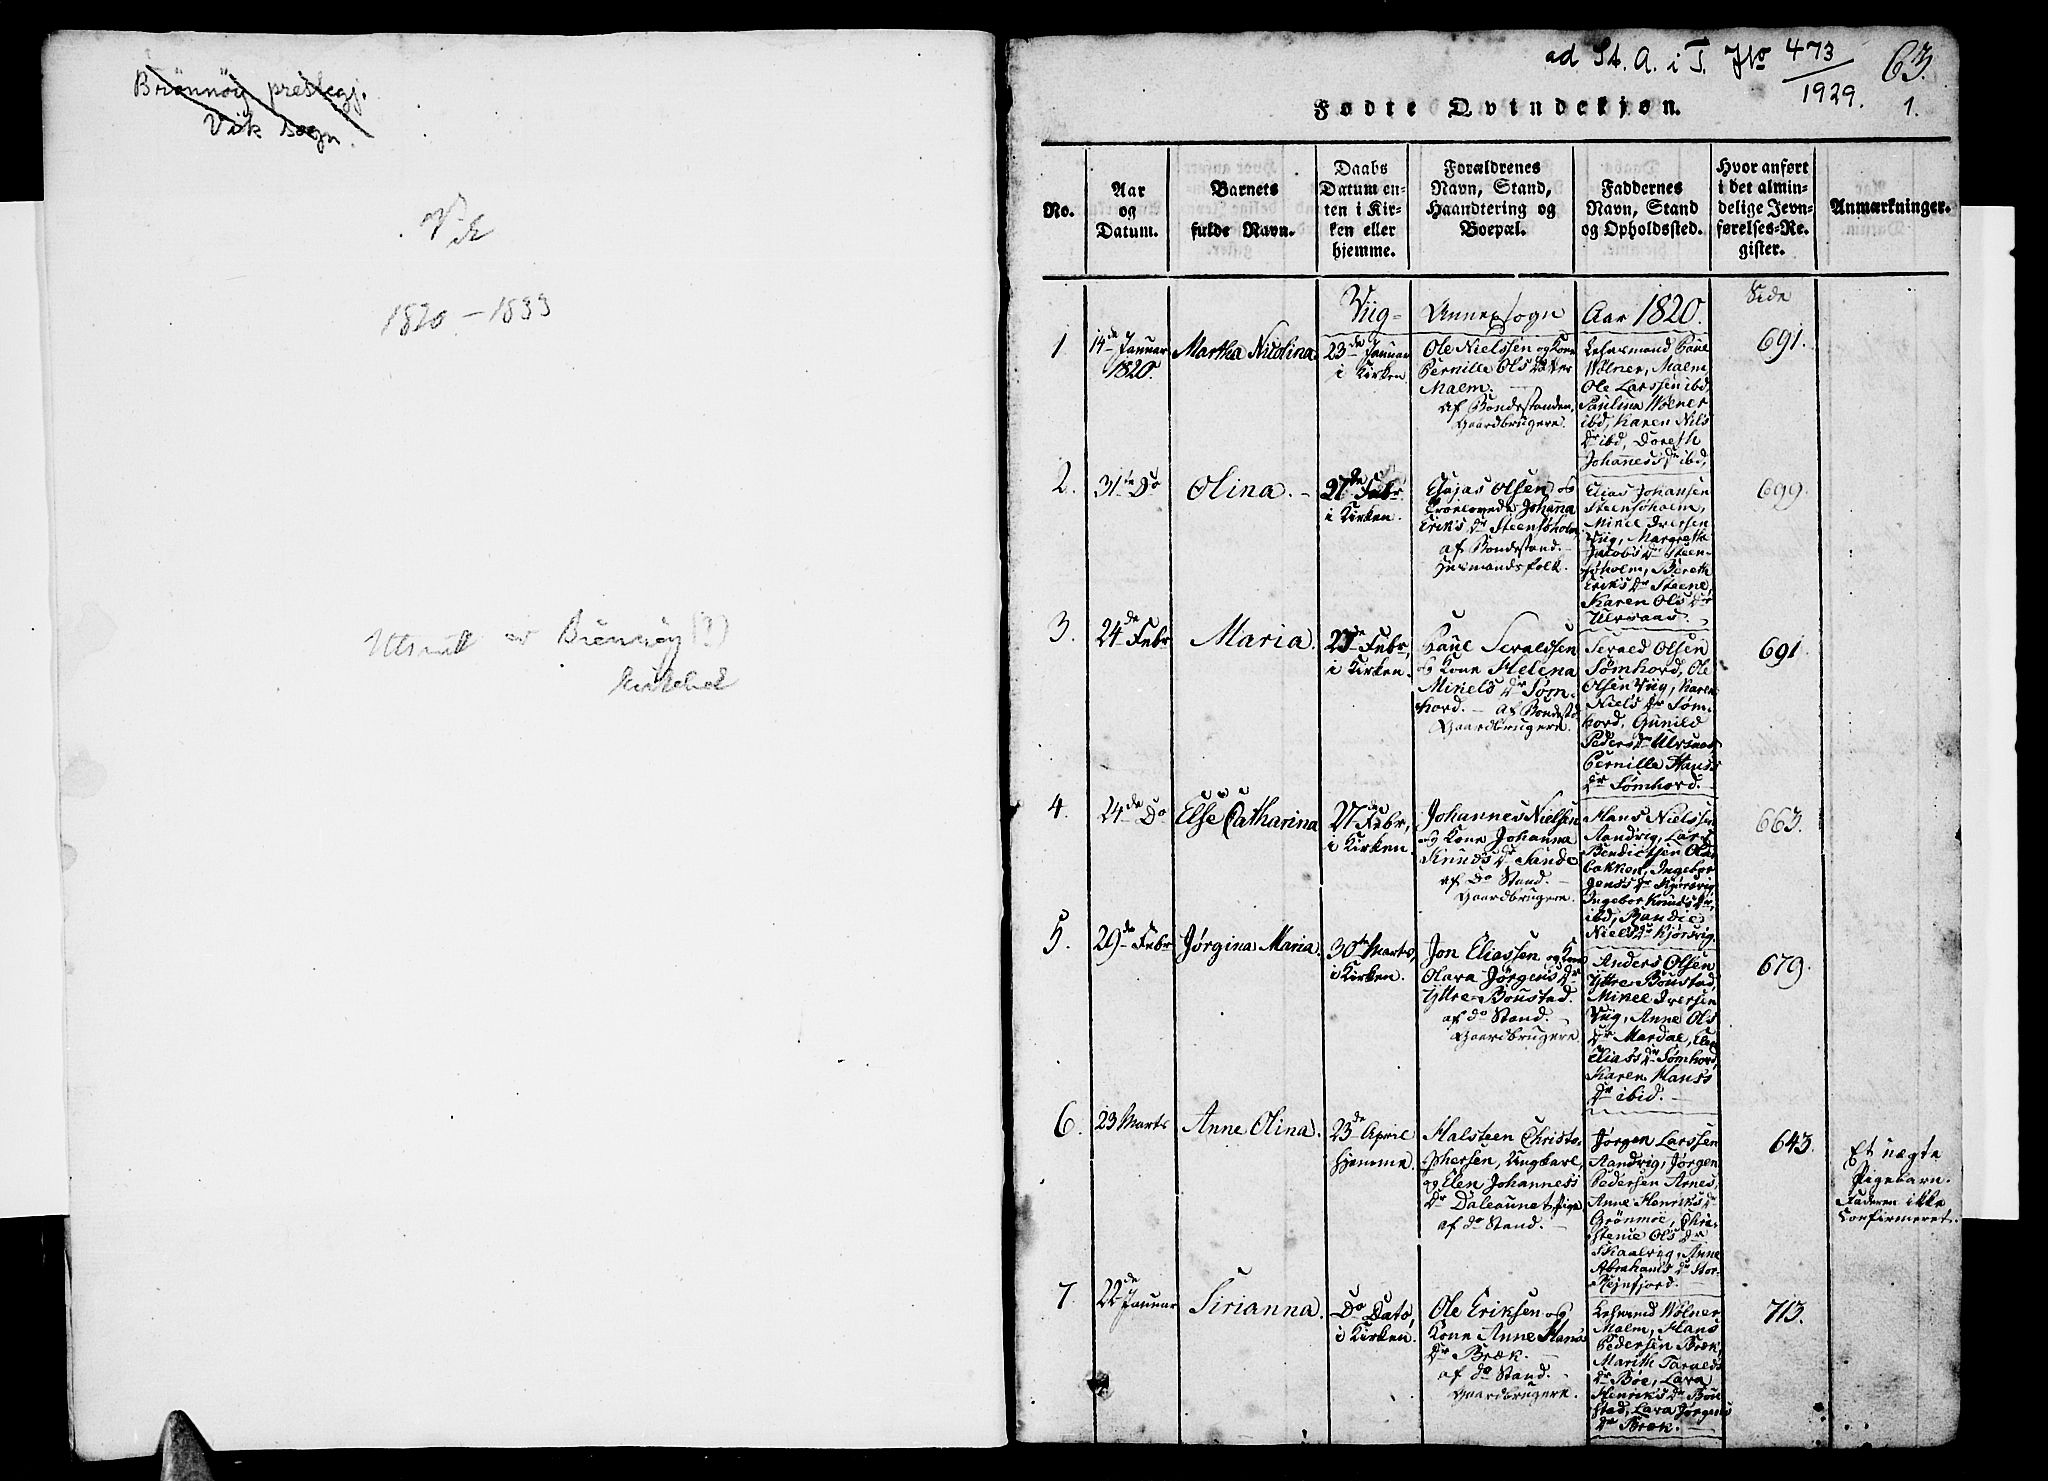 Brønnøy prestegj.
Vik sogn.
Vik
1820 - 1833
Utsnitt av Brønnøy (?)
kirkebok
ad St. A. i T. No 473/1929.
63.
1.
Fødte Qvindekjøn.
No.
Aar
og
Datum.
Barnets
fulde Navn.
Daabs
Datum en-
ten i Kir-
ken eller
hjemme.
Forældrenes
Navn, Stand,
Haandtering og
Boepæl.
Faddernes
Navn, Stand
og Opholdssted.
Hvor anført
i det almin-
delige Jevn-
førelses-Re-
gister.
Anmærkninger.
Viig-
Annexsogn
Aar 1820.
Side
1
14de Januar
1820.
Martha Nicolina
23de Januar
i Kirken
Ole Nielssen og Kone
Pernille Ols Dtter
Malm.
af Bondestanden,
Gaardbrugere.
Lehnsmand Poul
Wølner, Malm,
Ole Larssen ibd,
Paulina Wølner
ibd, Karen Nils
Dr ibd, Doreth
Johanness Dr ibd,
691.
2.
31te Do
Olina.
27de Febr.
i Kirken.
Esajas Olsen og
Troelovede Johanna
Eriks Dr Steensøholm,
af Bondestand.
Huusmandsfolk.
Elias Johansen
Steensøholm,
Mikel Iversen
Viig, Margrethe
Jacobs Dr Steen-
søholm, Bereth
Eriks Dr Steene,
Karen Ols Dr
Ulvsaas.
699.
3.
24de Febr
Maria.
27de Febr,
i Kirken.
Poul Sevaldsen
og Kone Helena
Mikels Dr Søm-
hord. - af Bondestd.
Gaardbrugere.
Sevald Olsen
Sømhord, Ole
Olsen Viig, Karen
Niels Dr Søm-
hord, Gunild
Peders Dr Ulvsaas
Pernille Hans
Dr Sømhord.
691.
4.
24de Do
Else Catharina
27de Febr,
i Kirken.
Johannes Nielsen
og Kone Johanna
Knuds Dr Sande
af Do Stand.
Gaardbrugere.
Hans Nielssen
Aandvig, Lars
Bendictsen Olds-
bakken, Ingebor
Jenss Dr Kjørsvig,
Ingebor Knuds Dr,
ibd, Randie
Niels Dr Kjørsvig.
663.
5.
29de Febr
Jørgina Maria.
30te Marts,
i Kirken.
Jon Eliassen og Kone
Olava Jørgens Dr
Yttre Boustad.
af do Stand.
Gaardbrugere.
Anders Olsen
Yttre Boustad,
Mikel Iversen
Viig, Anne Ols
Dr Mardal, Elen
Eliass Dr Sømhord,
Karen Hanss
Dr ibid.
679.
6.
23 Marts
Anne Olina.
23de April
hjemme.
Halsteen Christo-
phersen, Ungkarl,
og Elen Johanness
Dr Daleaunet Pige
af do Stand.
Jørgen Larssen
Aandvig, Jørgen
Pedersen Arnes,
Anne Henriks Dr
Grønmoe, Chri-
stenie Ols Dr
Skaalvig, Anne
Abrahams Dr Stor-
Rejnfjord.
643.
Et uægte
Pigebarn.
Faderen ikke
Confirmeret.
7.
22de Januar
Sirianna.
Do Dato,
i Kirken.
Ole Eriksen og
Kone Anne Hans
Dr Bræk.
af do Stand.
Gaardbrugere.
Lehnsmd Wølner
Malm, Hans
Pedersen Bræk,
Marith Taralds
Dr Bøe, Lava
Henriks Dr Bou-
stad, Lava Jørgens
Dr Bræk.
713.